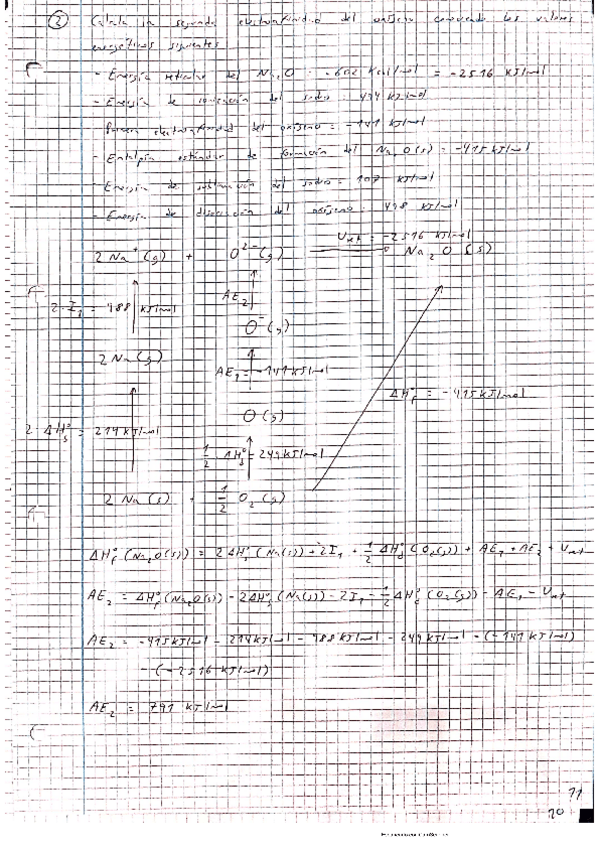 ② Calcula la segunda electroafinidad del oxígeno conociendo los valores
energéticos siguientes
- Energía reticular del Na₂O: -602 Kcal/mol = -2516 KJ/mol
- Energía de ionización del sodio: 494 KJ/mol
Primera electroafinidad del oxígeno = -141 KJ/mol
- Entalpía estándar de formación del Na₂O(s) = -415 KJ/mol
- Energía de sublimación del sodio = 107 KJ/mol
- Energía de disociación del oxígeno = 498 KJ/mol
U = -2516 KJ/mol
2 Na⁺(g) + O²⁻(g) Na₂O(s)
AE₂
2·I₁ = 988 KJ/mol
O⁻(g)
2 Na(g)
AE₁ = -141 KJ/mol
ΔH°f = -415 KJ/mol
O(g)
2 ΔH°s = 214 KJ/mol
1/2 ΔH° = 249 KJ/mol
2 Na(s) + 1/2 O₂(g)
ΔH°f (Na₂O(s)) = 2ΔH°s (Na(s)) + 2I₁ + 1/2 ΔH°d (O₂(g)) + AE₁ + AE₂ + U
AE₂ = ΔH°f (Na₂O(s)) - 2ΔH°s (Na(s)) - 2I₁ - 1/2 ΔH°d (O₂(g)) - AE₁ - U
AE₂ = -415 KJ/mol - 214 KJ/mol - 988 KJ/mol - 249 KJ/mol - (-141 KJ/mol)
- (-2516 KJ/mol)
AE₂ = 791 KJ/mol
11
20